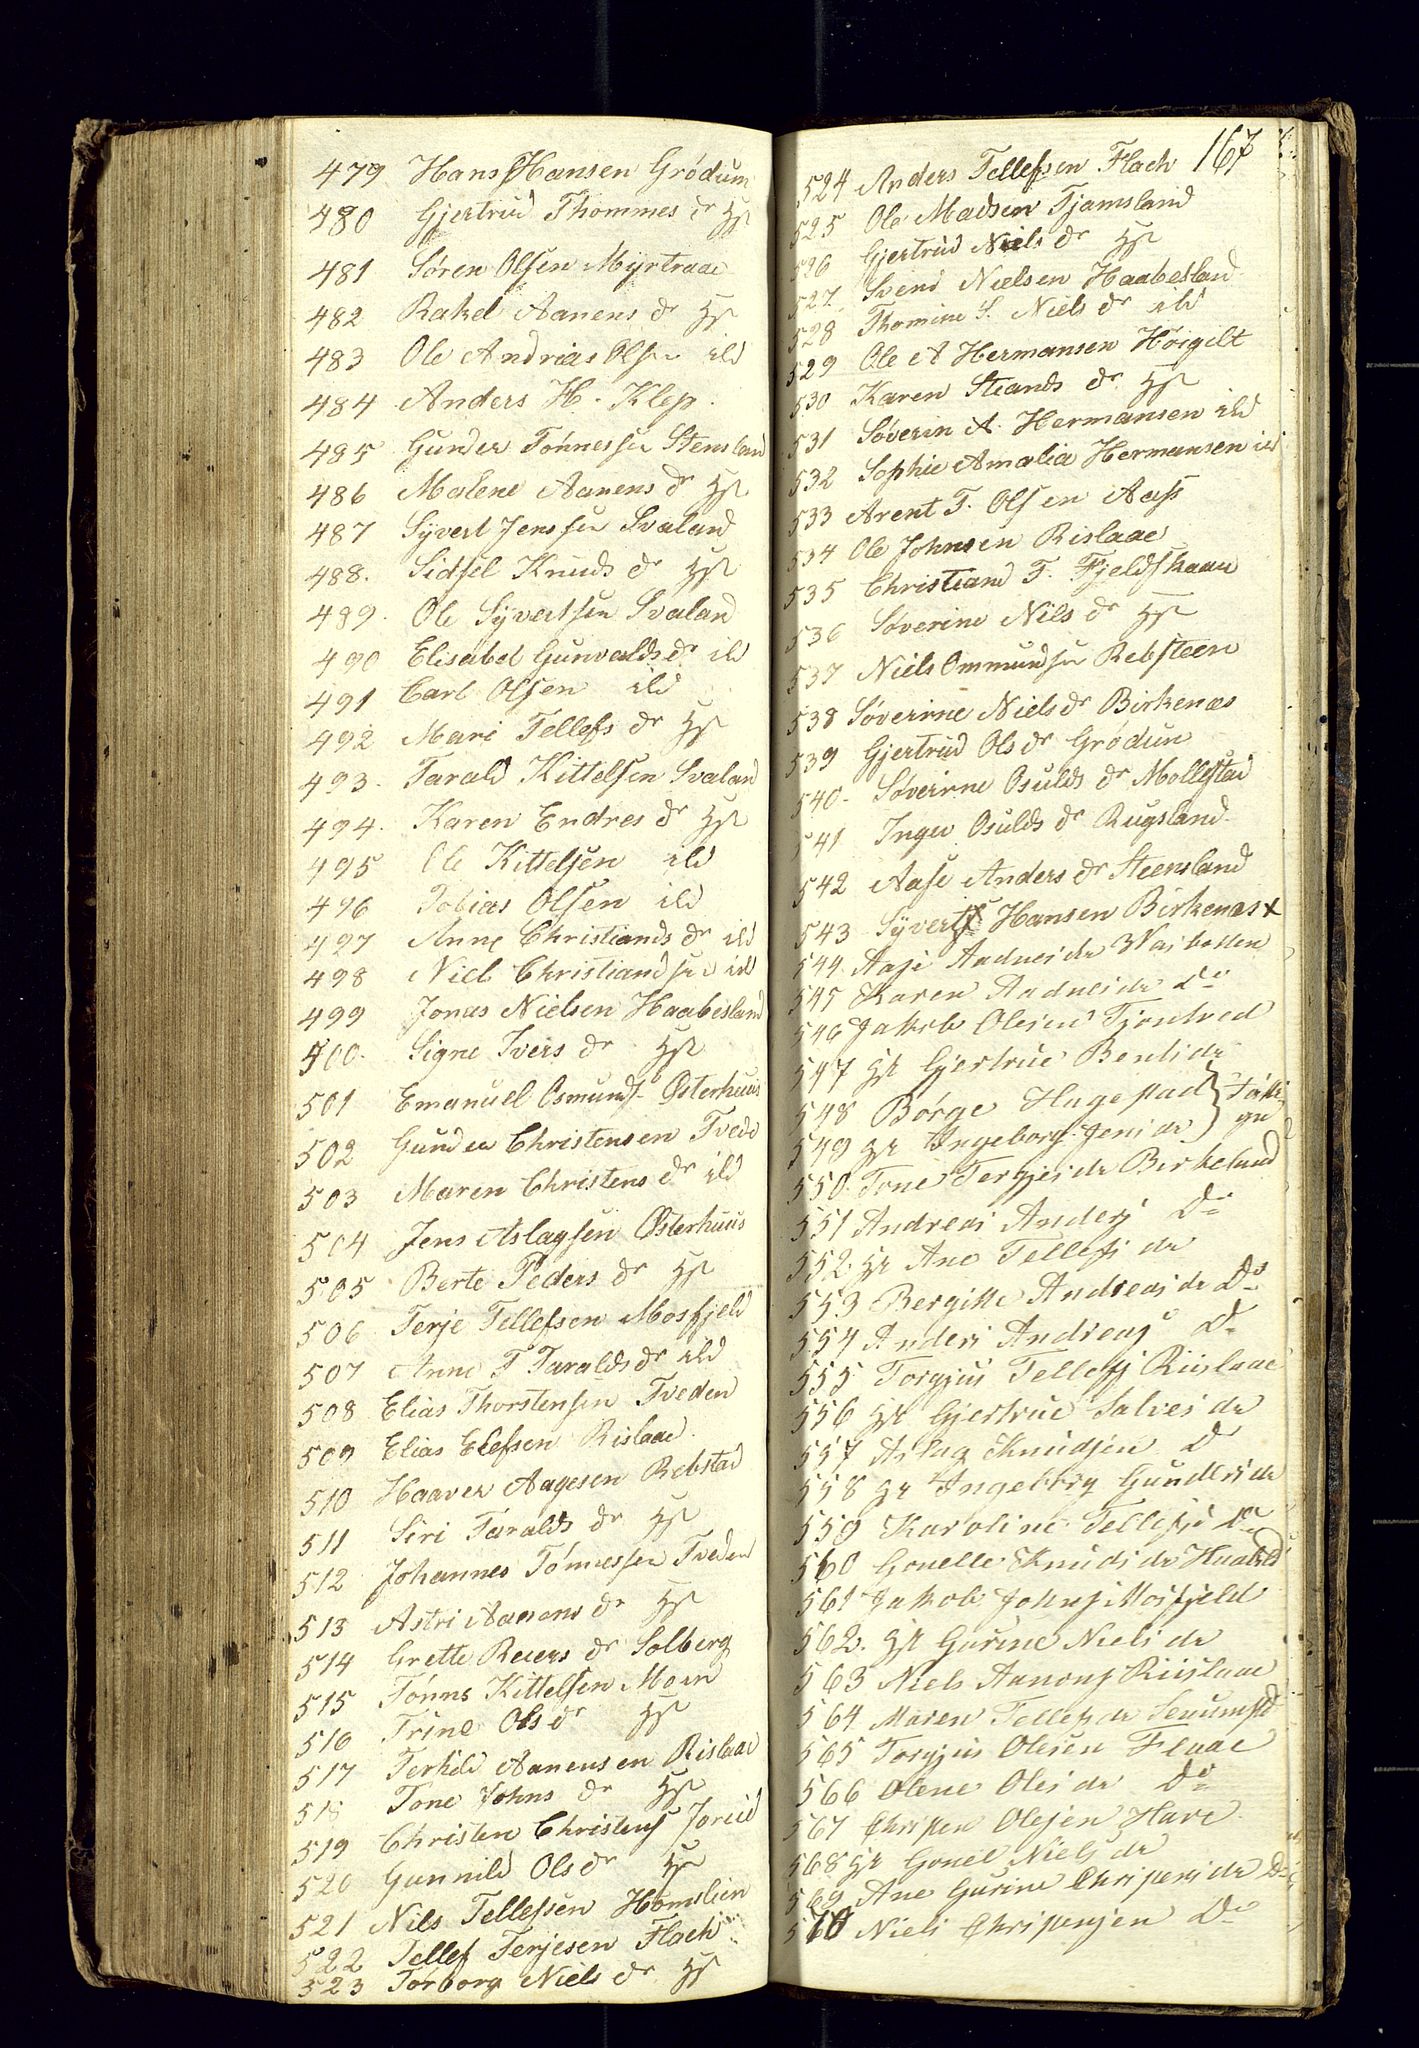 479 Hans Hansen Grødum
480 Gjertrud Thommes dr Hst
481 Søren Olsen Myrtraae
482 Rakel Aanens dr Hst
483 Ole Andrias Olsen ild
484 Anders H. Klep.
485 Gunder Tønnessen Stensland
486 Malene Aanens dr Hst
487 Syvert Jenssen Svaland
488. Sidsel Knuds dr Hst
489. Ole Syvertsen Svaland
490 Elisabet Gunvalds dr ild
491 Carl Olsen ild
492 Mari Tellefs dr Hst
493. Tarald Kittelsen Svaland
494. Karen Endres dr Hst
495 Ole Kittelsen ild
496 Tobias Olsen ild
497 Anne Christiands dr ild
498 Niels Christiandsen ild
499 Jonas Nielsen Haabesland
500. Signe Ivers dr Hst
501 Emanuel Osmunds Østerhuus
502 Gunder Christensen Tvede
503 Maren Christens dr ild
504 Jens Aslagsen Østerhuus
505 Berte Peders dr Hst
506 Terje Tellefsen Mosfjeld
507 Anne T Taralds dr ild
508 Elias Thorstensen Tveden
509 Elias Elefsen Rislaae.
510 Haaver Aagesen Rebstad
511 Siri Taralds dr Hst
512 Johannes Tønnessen Tveden
513 Astri Aanens dr Hst
514 Grette Reiers dr Solberg
515 Tønns Kittelsen Moen
516 Trine Ols dr Hst
517 Terkild Aanensen Rislaae
518 Tone Johns dr Hst
519 Christen Christens
520 Gunnild Ols dr Hst
521 Nils Tellefsen Homslien
522 Tellef Terjesen Flach
523 Torborg Niels dr Hst
167
524 Anders Tellefsen Flach
525 Ole Madsen Tjamsland
526 Gjertrud Niels dr Hst
527. Svend Nielsen Haabesland
528 Thomine S. Niels dr ild
529 Ole A Hermansen Høigilt
530 Karen Steands dr Hst
531 Søverin A. Hermansen ild
532 Sophie Amalia Hermansen ild
533 Arent T. Olsen Aass
534 Ole Johnsen Rislaae
535 Christiand T. Fjeldskaar
536 Søverine Nils dr Hst
537 Niels Ommundsen Rebsteen
538 Søverine Niels dr Birkenæs
539 Gjertrud Ols dr Grødum
540. Søverine Osulds dr Mollestad
541 Inger Osulds dr Rugsland
542 Aase Anders dr Steensland
543 Syvert Hansen Birkenæs x
544 Aase Aadnes dr
545 Karen Aadnes dr Do
546 Jakob Olesen
547 Hst Gjertrue Bents dr
548 Børge Hagestad
549 Hst Ingeborg Jens dr
550. Tone Tergjes dr Birkeland
551 Andreas Anders Do
552. Hst Ane Tellefs dr
553 Bergitte Andreas dr Do
554 Anders Andreas Do
555 Torgjus Tellefs Riislaae
556 Hst Gjertrue Salves dr
557 Aslag Knudsen Do
558 Hst Ingeborg Gunders dr
559 Karoline Tellefs Do
560 Gonelle Knuds dr
561 Jakob Johns Mosfjeld
562. Hst Gurine Niels dr
563 Niels Aanons Riislaae
564 Maren Tellefs dr
565 Torgjus Olesen Flaae
566 Olene Oles dr Do
567 Christen Olesen Hare
568 Hst Gonel Niels dr
569 Ane Gurine Christens dr Do
570 Niels Christensen Do